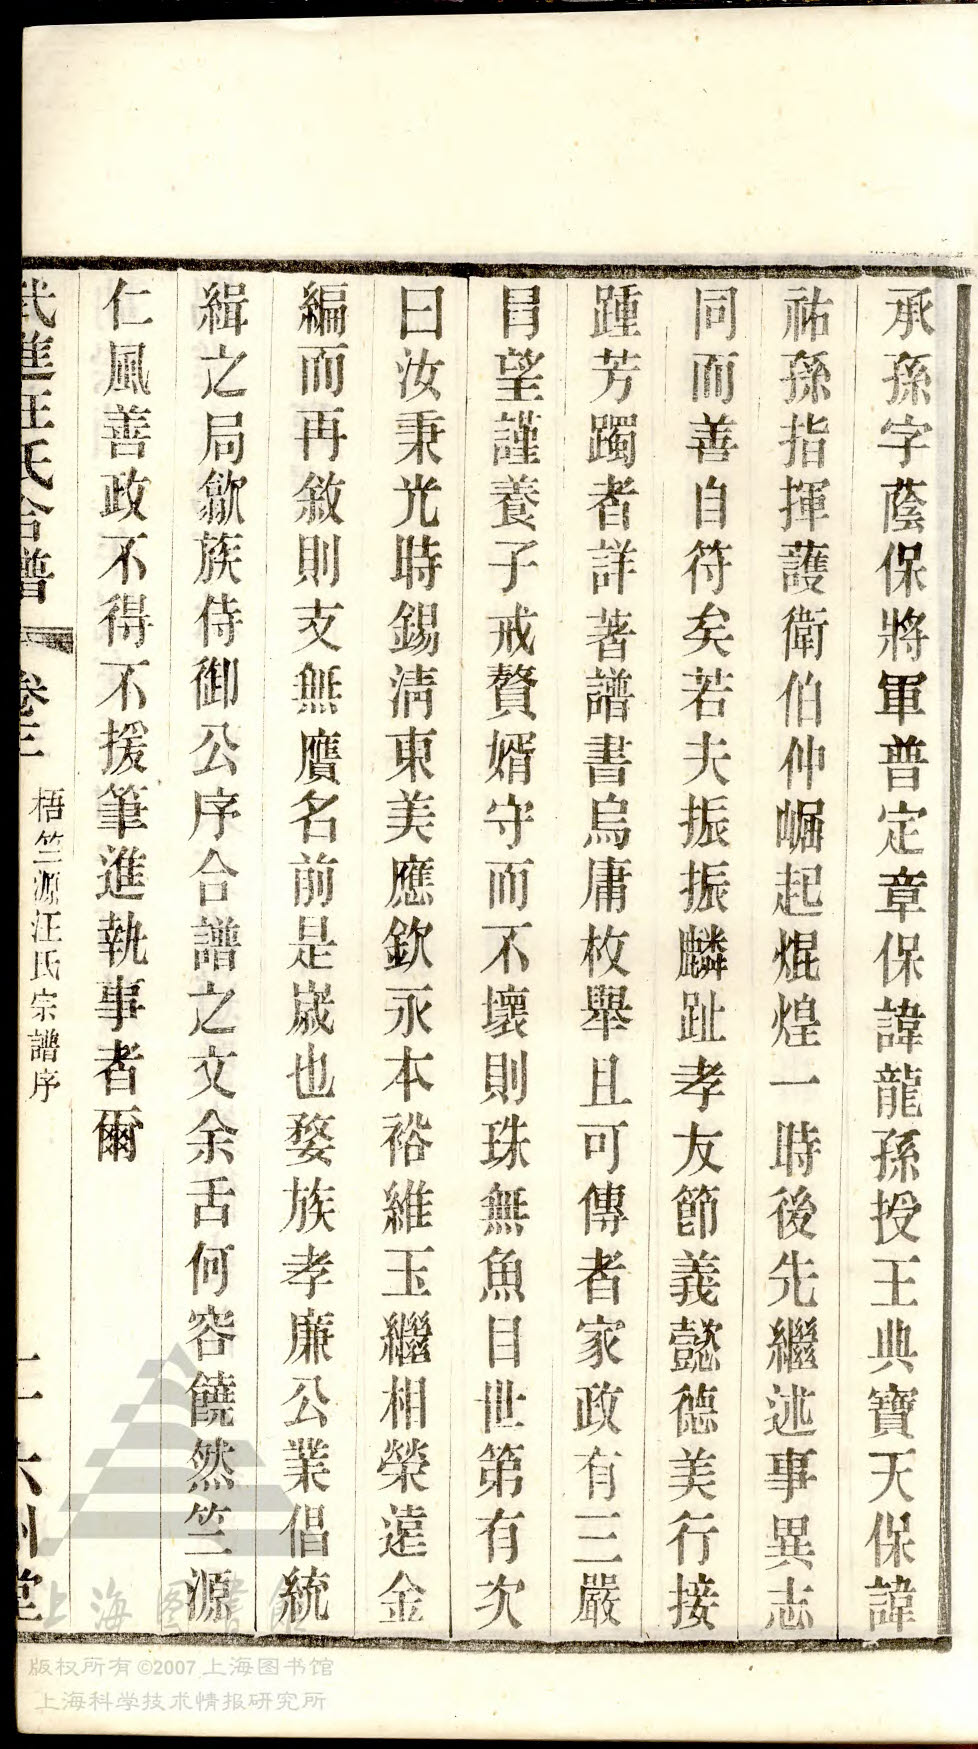 承孫字蔭保將軍普定章保諱龍孫授王典寶天保諱
祐孫指揮護衛伯仲崛起焜煌一時後先繼述事異志
同而善自符矣若夫振振麟趾孝友節義懿德美行接
踵芳躅者詳著譜書烏庸枚舉且可傳者家政有三嚴
冐望謹養子戒贅婿守而不壞則珠無魚目世第有次
曰汝秉光時錫淸東美應欽永本裕維玉繼相榮遠金
編而再敘則支無贋名前是嵗也婺族孝廉公業倡統
緝之局歙族侍御公序合譜之文余舌何容饒然竺源
仁風善政不得不援筆進執事者爾
武進汪氏合譜 卷三 梧竺源汪氏宗譜序 六州堂
上海图书馆
版权所有©2007上海图书馆
上海科学技术情报研究所